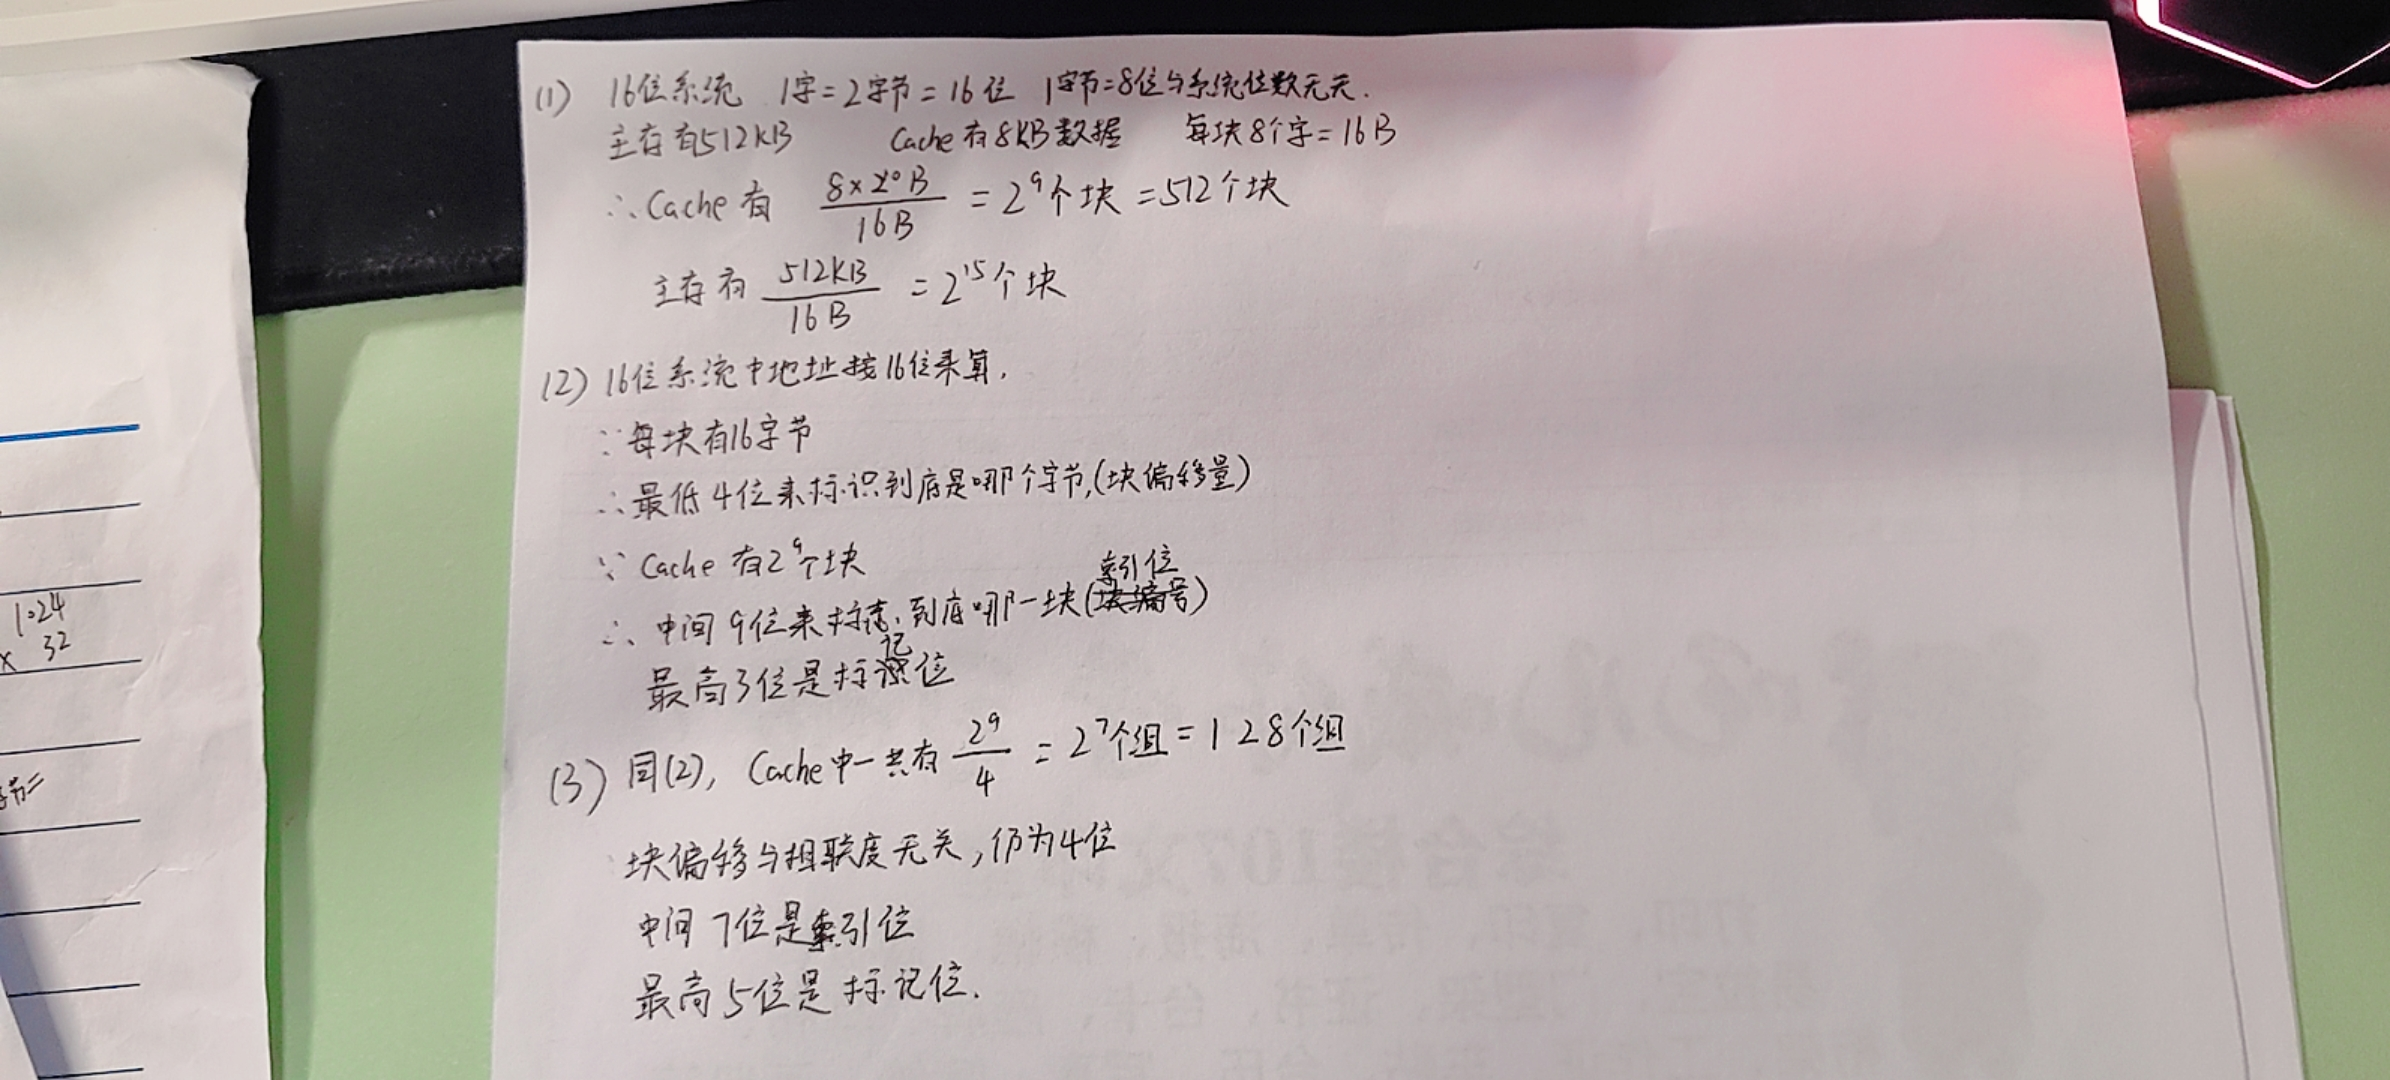 (1) 16位系统 1字=2字节=16位 1字节=8位与系统位数无关.
主存有512KB Cache有8KB数据 每块8个字=16B
∴Cache有 8×2¹⁰B/16B = 2⁹个块 =512个块
主存有 512KB/16B = 2¹⁵个块
(2) 16位系统中地址按16位来算.
∵每块有16字节
∴最低4位来标识到底是哪个字节,(块偏移量)
∵Cache有2⁹个块
索引位
∴中间9位来标志,到底哪一块(块编号)
记
最高3位是标识位
(3) 同(2), Cache中一共有 2⁹/4 = 2⁷个组=128个组
块偏移与相联度无关,仍为4位
中间7位是索引位
最高5位是标记位.
1024
× 32
字节=